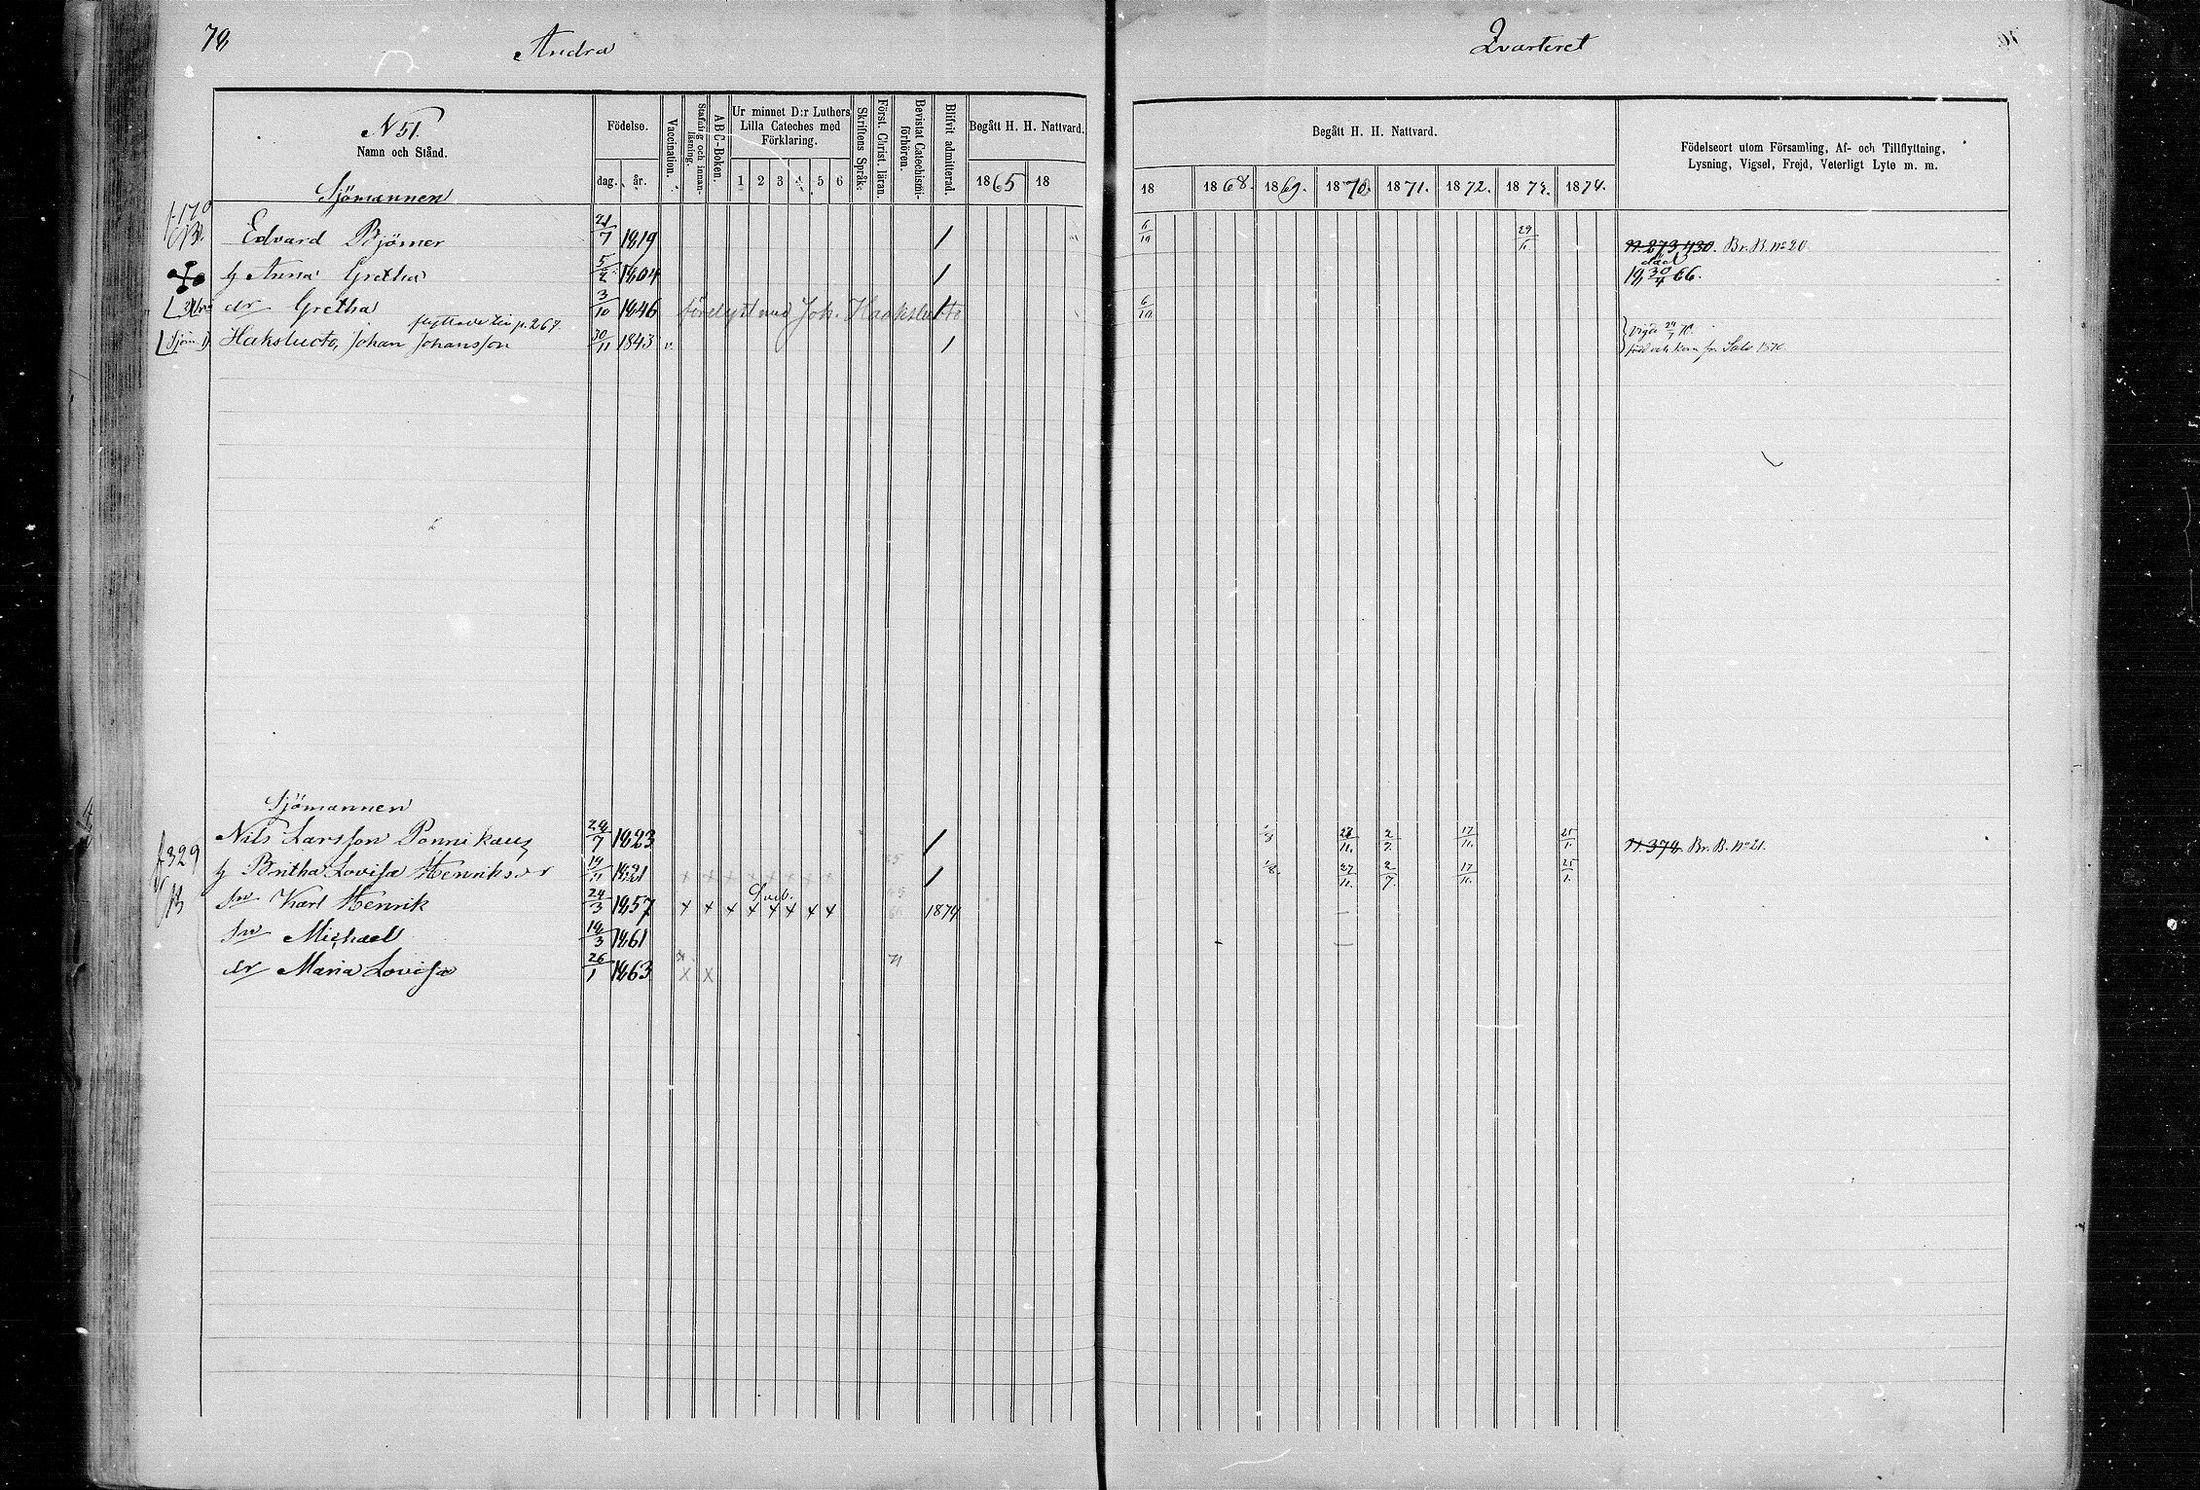 78
Andra
Qvarteret
N 51.
Namn och Stånd.
Födelse.
dag. år.
Vaccination.
Stafning och innan-läsning.
ABC-Boken.
Ur minnet D:r Luthers
Lilla Cateches med
Förklaring.
1 2 3 4 5 6
Skriftens Språk.
Först. Christ. läran.
Bevistat Catechismi-förhören.
Blifvit admitterad.
Begått H. H. Nattvard.
1865 18
Begått H. H. Nattvard.
18 1868. 1869. 1870. 1871. 1872. 1873. 1874.
Födelseort utom Församling, Af- och Tillflyttning,
Lysning, Vigsel, Frejd, Veterligt Lyte m. m.
Sjömannen
f. 170
Edvard Björner 21/7 1819 / 6/10 29/11 N. 273, 430. Br. B. no 20.
död
h Anna Gretha 5/2 1804 / 18 30/4 66.
dr Gretha 3/10 1846 förelyst med Joh. Haaksluoto 6/10
flyttade till p. 267.
Haksluoto, Johan Johansson 30/11 1843 v. /
Vigde 24/7 70.
född och kom fr. Salo 1870.
Sjömannen
f 329
Nils Larsson Ponnikas 28/7 1823 / 1/8 27/11. 2/7. 17/11. 25/1. N. 378. Br. B. No 21.
h Britha Lovisa Henriksdr 19/11 1821 x x x x x x x x / 1/8. 27/11. 2/7. 17/11. 25/1.
sn Karl Henrik 24/3 1857 x x x x x x x x 1874
sn Michael 18/3 1861
dr Maria Lovisa 26/1 1863 x x 71